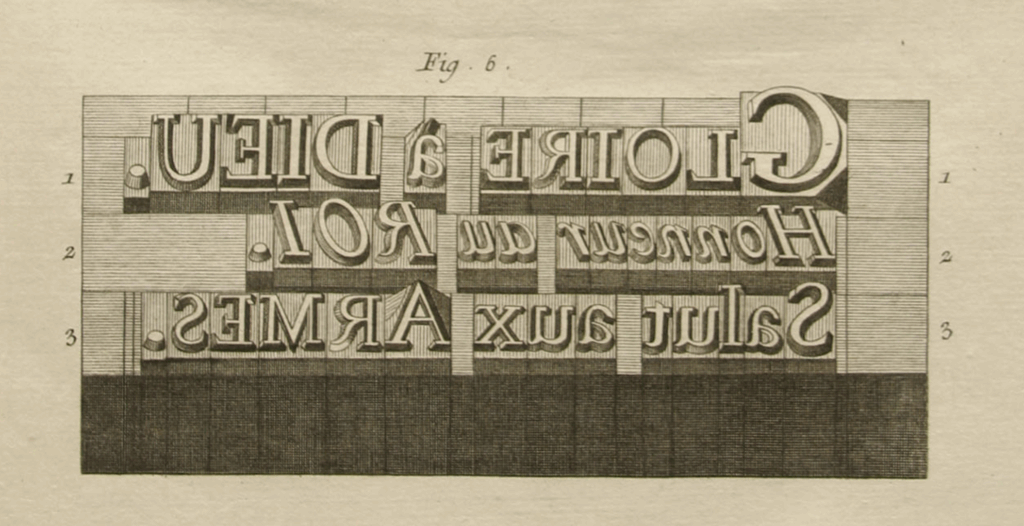 Fig. 6.
1 GLOIRE à DIEU. 1
2 Honneur au ROI. 2
3 Salut aux ARMES. 3